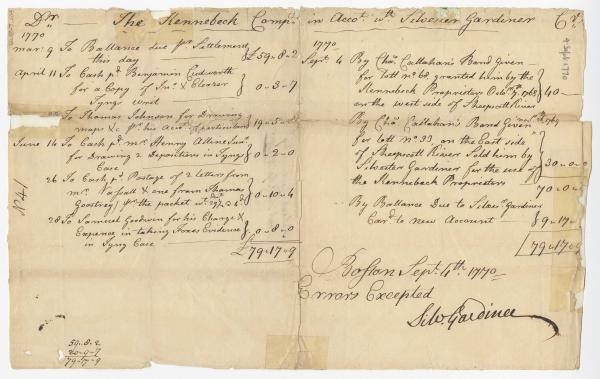 Dr. The Kennebeck Comp. in Accot. wth Silvester Gardiner Cr.
1770
Mar. 9 To Ballance due pr Settlement
this day £59-8-2
April 11 To Cash pd. Benjamin Cudworth
for a Copy of Ino. & Eleazer
Tyngs Writ 0-3-7
To Thomas Johnson for Drawing
maps &c pr his Acct. 19-5-
June 14 To Cash pd. mr. Henry Alline Junr.
for Drawing 2 Depositions in Tyng
Case 0-2-0
26 To Cash pd. Postage of 2 letters from
mr. & one from Thomas
Goostrey pr the packet 0-10-4
28 To Samuel Goodwin for his Charge &
Expence in taking Evidence
in Tyng Case 0-8-0
£79-17-9
1770
Sept. 4 By Chas. Callahan's Bond Given
for lott no. granted him by the
Kennebeck Proprietors
on the west side of Sheepscott River 40-
By Chas. Callahan's Bond Given
for lott no. 33 on the East side
of Sheepscott River Sold him by
Silvester Gardiner for the use of
the Kennebeck Proprietors 30-0-0
70-0-0
By Ballance Due to Silver. Gardiner
Card. to new Account £9-17-9
79-17-9
Boston Sept. 4th. 1770
Errors Excepted
Silv. Gardiner
59-8-2
20-9-7
79-17-9